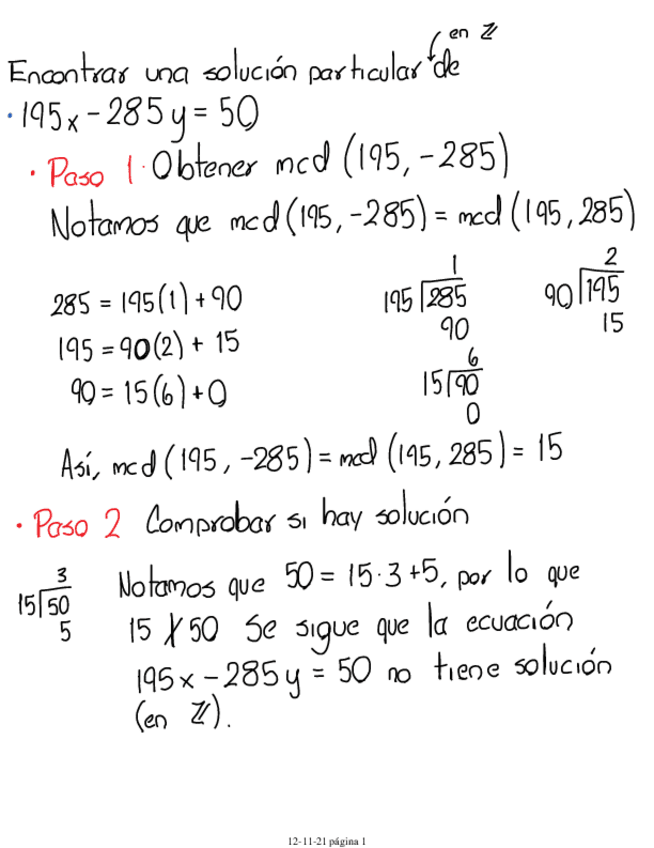 en ℤ
Encontrar una solución particular de
· 195x - 285y = 50
· Paso 1 · Obtener mcd (195, -285)
Notamos que mcd (195, -285) = mcd (195, 285)
285 = 195(1) + 90
195 = 90(2) + 15
90 = 15(6) + 0
1
195 285
90
2
90 195
15
6
15 90
0
Así, mcd (195, -285) = mcd (195, 285) = 15
· Paso 2 Comprobar si hay solución
3
15 50
5
Notamos que 50 = 15·3+5, por lo que
15 ∤ 50 Se sigue que la ecuación
195x - 285y = 50 no tiene solución
(en ℤ).
12-11-21 página 1